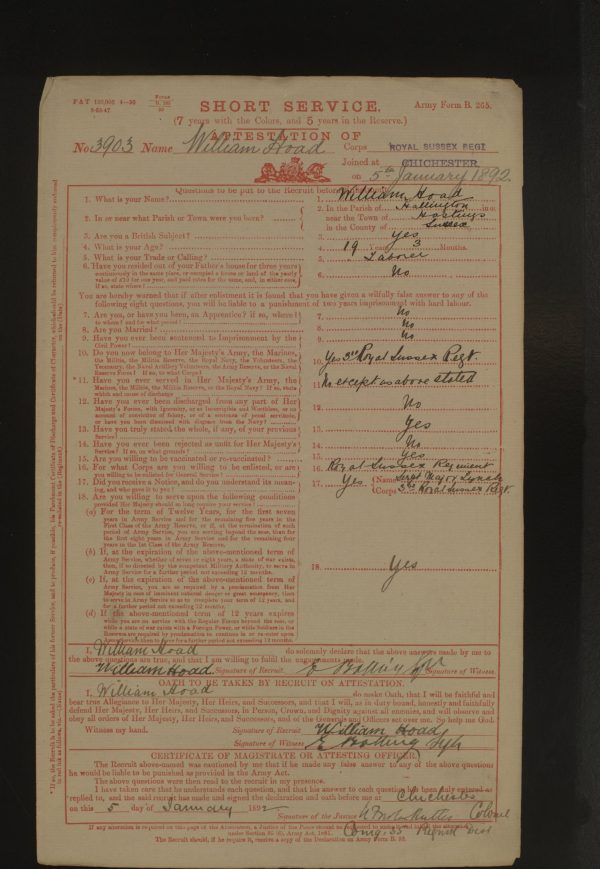 SHORT SERVICE.
Army Form B. 265.
(7 years with the Colors, and 5 years in the Reserve.)
ATTESTATION OF
No. 3903 Name William Hoad Corps ROYAL SUSSEX REGT
Joined at CHICHESTER
on 5th January 1892
Questions to be put to the Recruit before
1. What is your Name? 1. William Hoad
2. In or near what Parish or Town were you born? 2. In the Parish of Hollington in or
near the Town of Hastings
in the County of Sussex
3. Are you a British Subject? 3. Yes
4. What is your Age? 4. 19 Years 3 Months.
5. What is your Trade or Calling? 5. Laborer
6. Have you resided out of your Father's house for three years
continuously in the same place, or occupied a house or land of the yearly
value of £10 for one year, and paid rates for the same, and, in either case,
if so, state where? 6. No
You are hereby warned that if after enlistment it is found that you have given a wilfully false answer to any of the
following eight questions, you will be liable to a punishment of two years imprisonment with hard labour.
7. Are you, or have you been, an Apprentice? if so, where?
to whom? and for what period? 7. No
8. Are you Married? 8. No
9. Have you ever been sentenced to Imprisonment by the
Civil Power? 9. No
10. Do you now belong to Her Majesty's Army, the Marines,
the Militia, the Militia Reserve, the Royal Navy, the Volunteers, the
Yeomanry, the Naval Artillery Volunteers, the Army Reserve, or the Naval
Reserve Force? If so, to what Corps? 10. Yes 3rd Royal Sussex Regt
*11. Have you ever served in Her Majesty's Army, the
Marines, the Militia, the Militia Reserve, or the Royal Navy? If so, state
which and cause of discharge 11. No except as above stated
12. Have you ever been discharged from any part of Her
Majesty's Forces, with Ignominy, or as Incorrigible and Worthless, or on
account of conviction of felony, or of a sentence of penal servitude,
or have you been dismissed with disgrace from the Navy? 12. No
13. Have you truly stated the whole, if any, of your previous
Service? 13. Yes
14. Have you ever been rejected as unfit for Her Majesty's
Service? If so, on what grounds? 14. No
15. Are you willing to be vaccinated or re-vaccinated? 15. Yes
16. For what Corps are you willing to be enlisted, or are
you willing to be enlisted for General Service? 16. Royal Sussex Regiment
17. Did you receive a Notice, and do you understand its meaning,
and who gave it to you? 17. Yes (Name Sergt Major
(Corps 3rd Royal Sussex Regt.
18. Are you willing to serve upon the following conditions
provided Her Majesty should so long require your service?
(a) For the term of Twelve Years, for the first seven
years in Army Service and for the remaining five years in the
First Class of the Army Reserve, or if, at the termination of such
period of Army Service, you are serving beyond the seas, then for
the first eight years in Army Service and for the remaining four
years in the 1st Class of the Army Reserve.
(b) If, at the expiration of the above-mentioned term of
Army Service, whether of seven or eight years, a state of war exists,
then, if so directed by the competent Military Authority, to serve in
Army Service for a further period, not exceeding 12 months.
(c) If, at the expiration of the above-mentioned term of
Army Service, you are so required by a proclamation from Her
Majesty in case of imminent national danger or great emergency, then
to serve in Army Service so as to complete your term of 12 years, and
for a further period not exceeding 12 months.
(d) If the above-mentioned term of 12 years expires
while you are on service with the Regular Forces beyond the seas, or
while a state of war exists with a Foreign Power, or while Soldiers in the
Reserve are required by proclamation to continue in or re-enter upon
Army Service, then to serve for a further period not exceeding 12 months.
18. Yes
I, William Hoad do solemnly declare that the above answers made by me to
the above questions are true, and that I am willing to fulfil the engagements made.
William Hoad Signature of Recruit. Signature of Witness.
OATH TO BE TAKEN BY RECRUIT ON ATTESTATION.
I, William Hoad do make Oath, that I will be faithful and
bear true Allegiance to Her Majesty, Her Heirs, and Successors, and that I will, as in duty bound, honestly and faithfully
defend Her Majesty, Her Heirs, and Successors, in Person, Crown, and Dignity against all enemies, and will observe and
obey all orders of Her Majesty, Her Heirs, and Successors, and of the Generals and Officers set over me. So help me God.
Witness my hand. Signature of Recruit William Hoad
Signature of Witness
CERTIFICATE OF MAGISTRATE OR ATTESTING OFFICER.
The Recruit above-named was cautioned by me that if he made any false answer to any of the above questions
he would be liable to be punished as provided in the Army Act.
The above questions were then read to the recruit in my presence.
I have taken care that he understands each question, and that his answer to each question has been duly entered as
replied to, and the said recruit has made and signed the declaration and oath before me at Chichester
on this 5 day of January 1892
Signature of the Justice Colonel
If any alteration is required on this page of the Attestation, a Justice of the Peace should be requested to
under Section 80 (6), Army Act, 1881. Comg. 35 Regtl Dist
The Recruit should, if he require it, receive a copy of the Declaration on Army Form B.